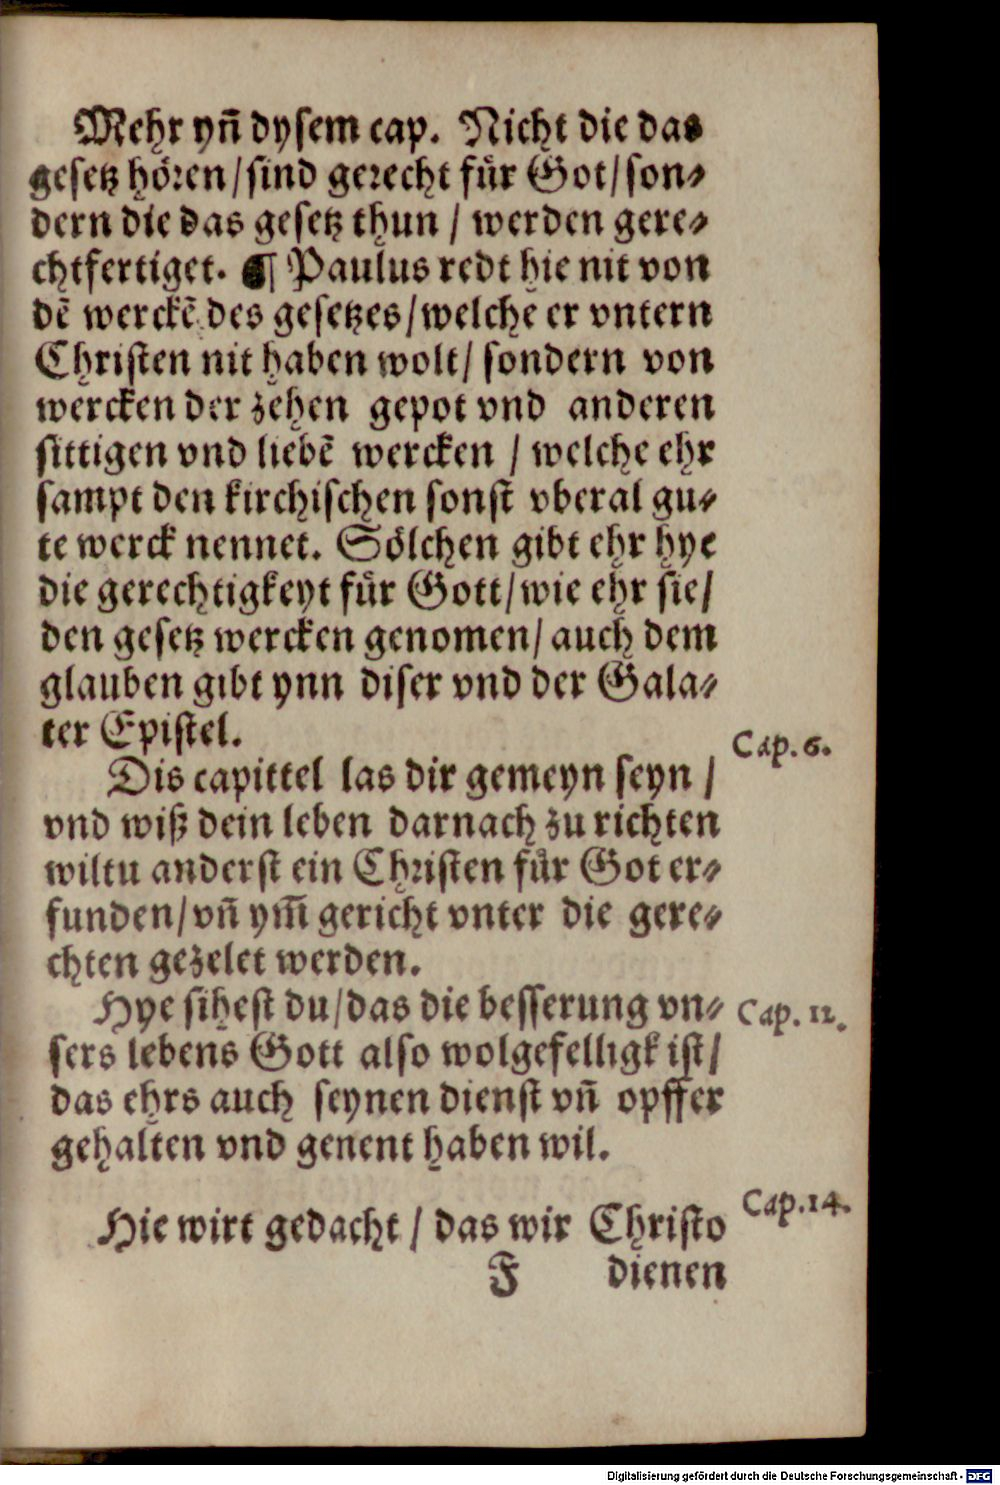 Mehr yñ dysem cap. Nicht die das
gesetz hören/sind gerecht für Got/son⸗
dern die das gesetz thun / werden gere⸗
chtfertiget. ¶ Paulus redt hie nit von
dē werckē des gesetzes/welche er vntern
Christen nit haben wolt/ sondern von
wercken der zehen gepot vnd anderen
sittigen vnd liebē wercken / welche ehr
sampt den kirchischen sonst vberal gu⸗
te werck nennet. Sölchen gibt ehr hye
die gerechtigkeyt für Gott/wie ehr sie/
den gesetz wercken genomen/ auch dem
glauben gibt ynn diser vnd der Gala⸗
ter Epistel.
Cap. 6.
Dis capittel las dir gemeyn seyn /
vnd wiß dein leben darnach zu richten
wiltu anderst ein Christen für Got er⸗
funden/vñ ym̃ gericht vnter die gere⸗
chten gezelet werden.
Hye sihest du/das die besserung vn⸗
Cap. 12.
sers lebens Gott also wolgefelligk ist/
das ehrs auch seynen dienst vñ opffer
gehalten vnd genent haben wil.
Cap. 14.
Hie wirt gedacht / das wir Christo
F dienen
Digitalisierung gefördert durch die Deutsche Forschungsgemeinschaft - DFG